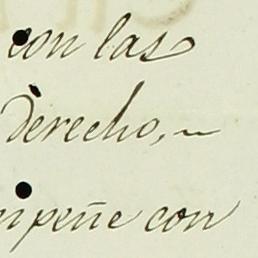 con las
derecho, ~
mpeñe con